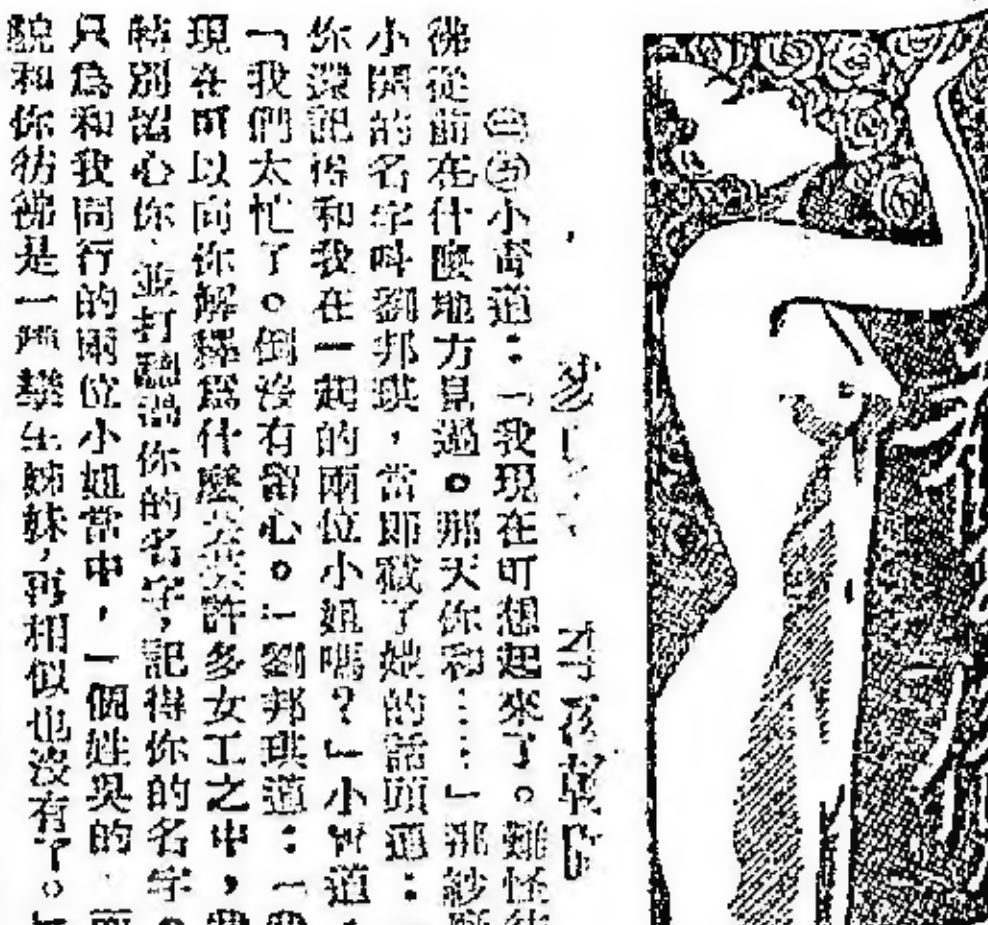 小雷道：「我現在可想起來了。難怪彷
彿從前在什麼地方見過。那天你和……」那紗
小開的名字叫劉邦琪，當即截了她的話頭道：
你還記得和我在一起的兩位小姐嗎？」小雷道
「我們太忙了。倒沒有留心。」劉邦琪道：「我
現在可以向你解釋爲什麼在許多女工之中，我
特別留心你，並打聽得你的名字，記得你的名字。
只爲和我同行的兩位小姐當中，一個姓吳的，面
貌和你彷彿是一對孿生姊妹，再相似也沒有了。